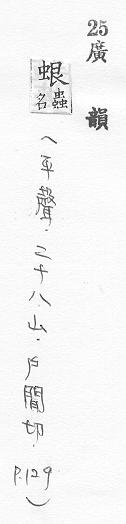 25廣韻
蛝蟲名
(平聲.二十八山.戶閒切.P.129)